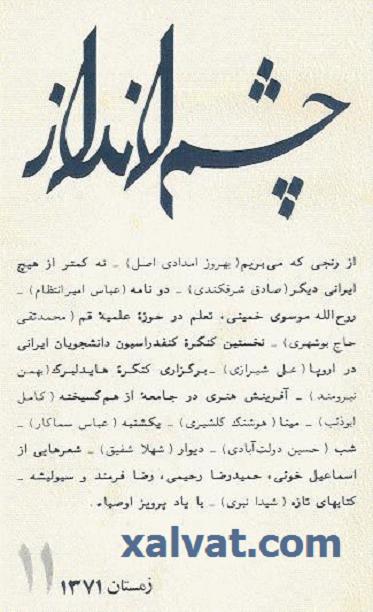 چشم‌انداز
از رنجی که می‌بریم (بهروز امدادی اصل) ـ نه کمتر از هیچ
ایرانی دیگر (صادق شرفکندی) ـ دو نامه (عباس امیرانتظام) ـ
روح‌الله موسوی خمینی، تعلم در حوزهٔ علمیهٔ قم (محمدتقی
حاج بوشهری) ـ نخستین کنگرهٔ کنفدراسیون دانشجویان ایرانی
در اروپا (علی شیرازی) ـ برگزاری کنگرهٔ هایدلبرگ (بهمن
نیرومند) ـ آفرینش هنری در جامعهٔ از هم‌گسیخته (کامل
ابوذئب) ـ مینا (هوشنگ گلشیری) ـ یکشنبه (عباس سماکار) ـ
شب (حسین دولت‌آبادی) ـ دیوار (شهلا شفیق) ـ شعرهایی از
اسماعیل خوئی، حمیدرضا رحیمی، رضا فرمند و سیولیشه ـ
کتابهای تازه (شیدا نبوی) ـ با یاد پرویز اوصیاء.
xalvat.com
۱۱ زمستان ۱۳۷۱